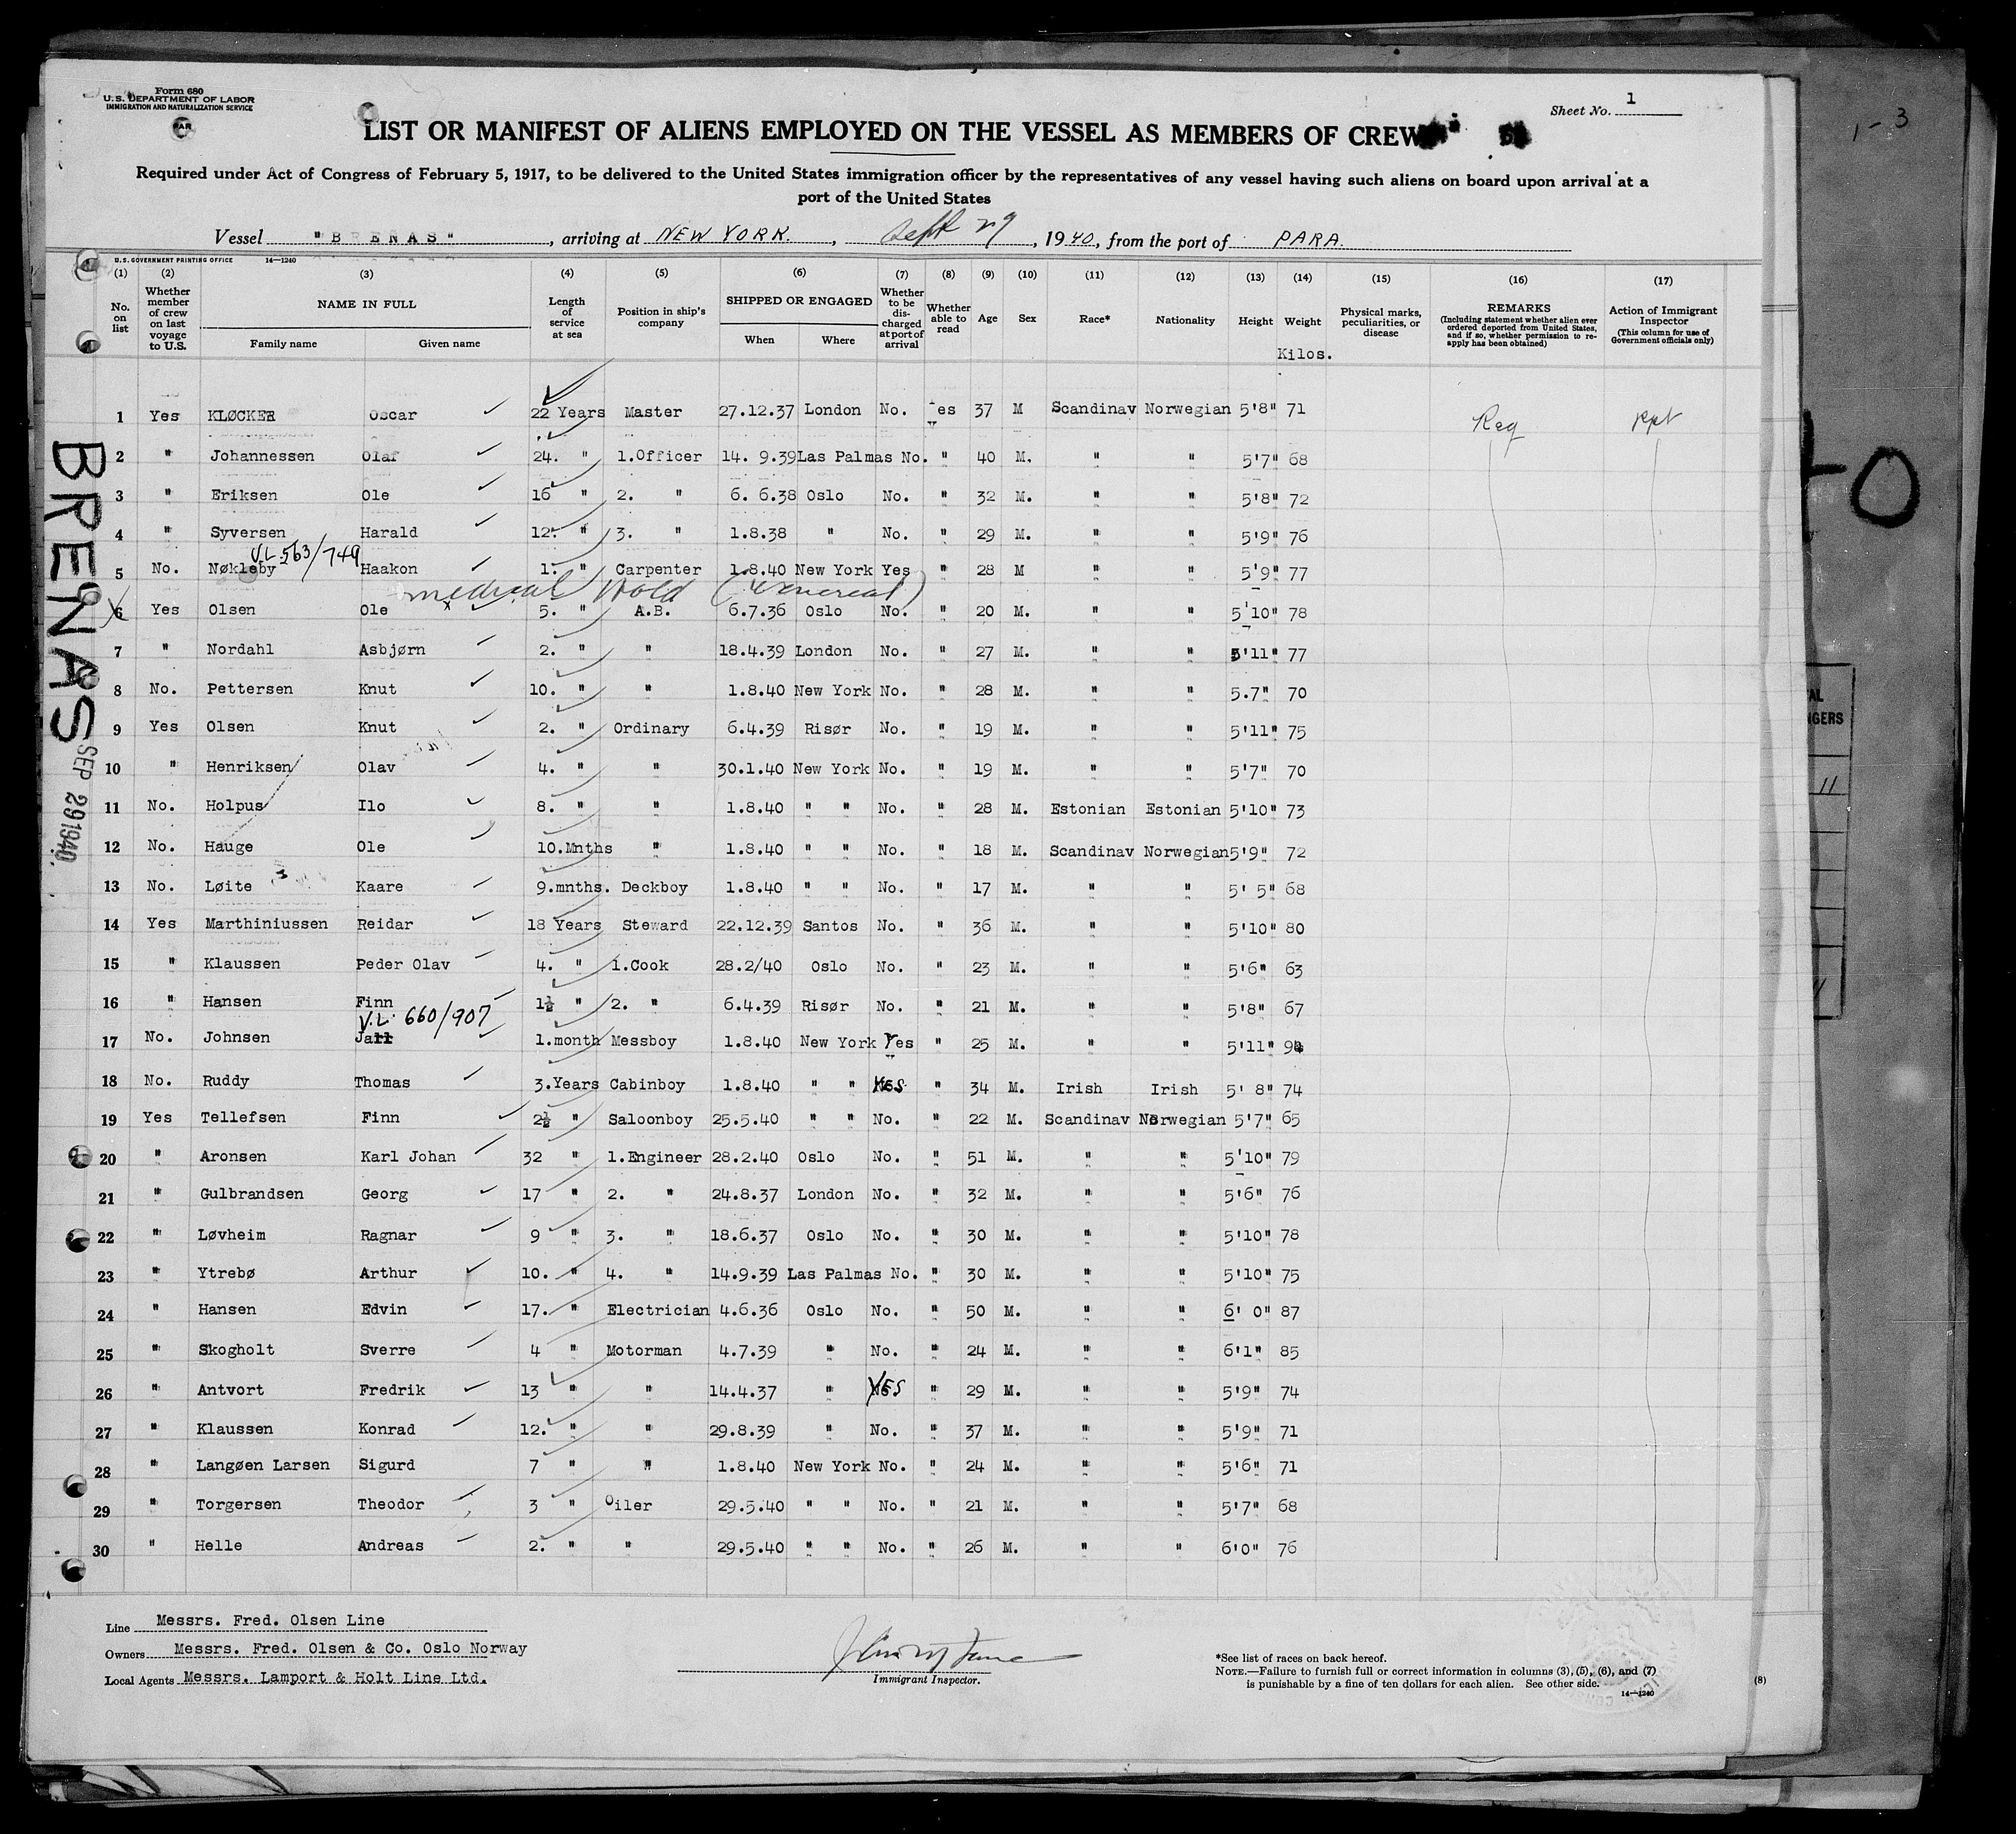 Form 680
U. S. DEPARTMENT OF LABOR
IMMIGRATION AND NATURALIZATION SERVICE
Sheet No. 1
LIST OR MANIFEST OF ALIENS EMPLOYED ON THE VESSEL AS MEMBERS OF CREW
1 - 3
Required under Act of Congress of February 5, 1917, to be delivered to the United States immigration officer by the representatives of any vessel having such aliens on board upon arrival at a
port of the United States
Vessel "BRENAS", arriving at NEW YORK., Sept 29, 1940, from the port of PARA.
U. S. GOVERNMENT PRINTING OFFICE 14—1240
(1) (2) (3) (4) (5) (6) (7) (8) (9) (10) (11) (12) (13) (14) (15) (16) (17)
No. on list
Whether member of crew on last voyage to U.S.
NAME IN FULL
Family name Given name
Length of service at sea
Position in ship's company
SHIPPED OR ENGAGED
When Where
Whether to be discharged at port of arrival
Whether able to read
Age
Sex
Race*
Nationality
Height
Weight
Kilos.
Physical marks, peculiarities, or disease
REMARKS
(Including statement whether alien ever ordered deported from United States, and if so, whether permission to re-apply has been obtained)
Action of Immigrant Inspector
(This column for use of Government officials only)
1 Yes KLØCKER Oscar 22 Years Master 27.12.37 London No. Yes 37 M Scandinav Norwegian 5'8" 71 Reg
2 " Johannessen Olaf 24. " 1.Officer 14. 9.39 Las Palmas No. " 40 M. " " 5'7" 68
3 " Eriksen Ole 16 " 2. " 6. 6.38 Oslo No. " 32 M. " " 5'8" 72
4 " Syversen Harald 12. " 3. " 1.8.38 " No. " 29 M. " " 5'9" 76
V.L. 563/749
5 No. Nøkleby Haakon 1. " Carpenter 1.8.40 New York Yes " 28 M " " 5'9" 77
medical Hold (Venereal)
6 Yes Olsen Ole x 5. " A.B. 6.7.36 Oslo No. " 20 M. " " 5'10" 78
7 " Nordahl Asbjørn 2. " " 18.4.39 London No. " 27 M. " " 5'11" 77
8 No. Pettersen Knut 10. " " 1.8.40 New York No. " 28 M. " " 5.7" 70
9 Yes Olsen Knut 2. " Ordinary 6.4.39 Risør No. " 19 M. " " 5'11" 75
10 " Henriksen Olav 4. " " 30.1.40 New York No. " 19 M. " " 5'7" 70
11 No. Holpus Ilo 8. " " 1.8.40 " " No. " 28 M. Estonian Estonian 5'10" 73
12 No. Hauge Ole 10.Mnths " 1.8.40 " " No. " 18 M. Scandinav Norwegian 5'9" 72
13 No. Løite Kaare 9.mnths. Deckboy 1.8.40 " " No. " 17 M. " " 5' 5" 68
14 Yes Marthiniussen Reidar 18 Years Steward 22.12.39 Santos No. " 36 M. " " 5'10" 80
15 " Klaussen Peder Olav 4. " 1.Cook 28.2/40 Oslo No. " 23 M. " " 5'6" 63
16 " Hansen Finn 1½ " 2. " 6.4.39 Risør No. " 21 M. " " 5'8" 67
V.L. 660/907
17 No. Johnsen Jall 1.month Messboy 1.8.40 New York Yes " 25 M. " " 5'11" 94
18 No. Ruddy Thomas 3.Years Cabinboy 1.8.40 " " YES " 34 M. Irish Irish 5' 8" 74
19 Yes Tellefsen Finn 2½ " Saloonboy 25.5.40 " " No. " 22 M. Scandinav Norwegian 5'7" 65
20 " Aronsen Karl Johan 32 " 1.Engineer 28.2.40 Oslo No. " 51 M. " " 5'10" 79
21 " Gulbrandsen Georg 17 " 2. " 24.8.37 London No. " 32 M. " " 5'6" 76
22 " Løvheim Ragnar 9 " 3. " 18.6.37 Oslo No. " 30 M. " " 5'10" 78
23 " Ytrebø Arthur 10. " 4. " 14.9.39 Las Palmas No. " 30 M. " " 5'10" 75
24 " Hansen Edvin 17. " Electrician 4.6.36 Oslo No. " 50 M. " " 6' 0" 87
25 " Skogholt Sverre 4 " Motorman 4.7.39 " No. " 24 M. " " 6'1" 85
26 " Antvort Fredrik 13 " " 14.4.37 " YES " 29 M. " " 5'9" 74
27 " Klaussen Konrad 12. " " 29.8.39 " No. " 37 M. " " 5'9" 71
28 " Langøen Larsen Sigurd 7 " " 1.8.40 New York No. " 24 M. " " 5'6" 71
29 " Torgersen Theodor 3 " Oiler 29.5.40 " " No. " 21 M. " " 5'7" 68
30 " Helle Andreas 2. " " 29.5.40 " " No. " 26 M. " " 6'0" 76
BRENAS
SEP 29 1940
Line Messrs. Fred. Olsen Line
Owners Messrs. Fred. Olsen & Co. Oslo Norway
Local Agents Messrs. Lamport & Holt Line Ltd.
Immigrant Inspector.
*See list of races on back hereof.
NOTE.—Failure to furnish full or correct information in columns (3), (5), (6), and (7)
is punishable by a fine of ten dollars for each alien. See other side.
14—1240
(8)
11